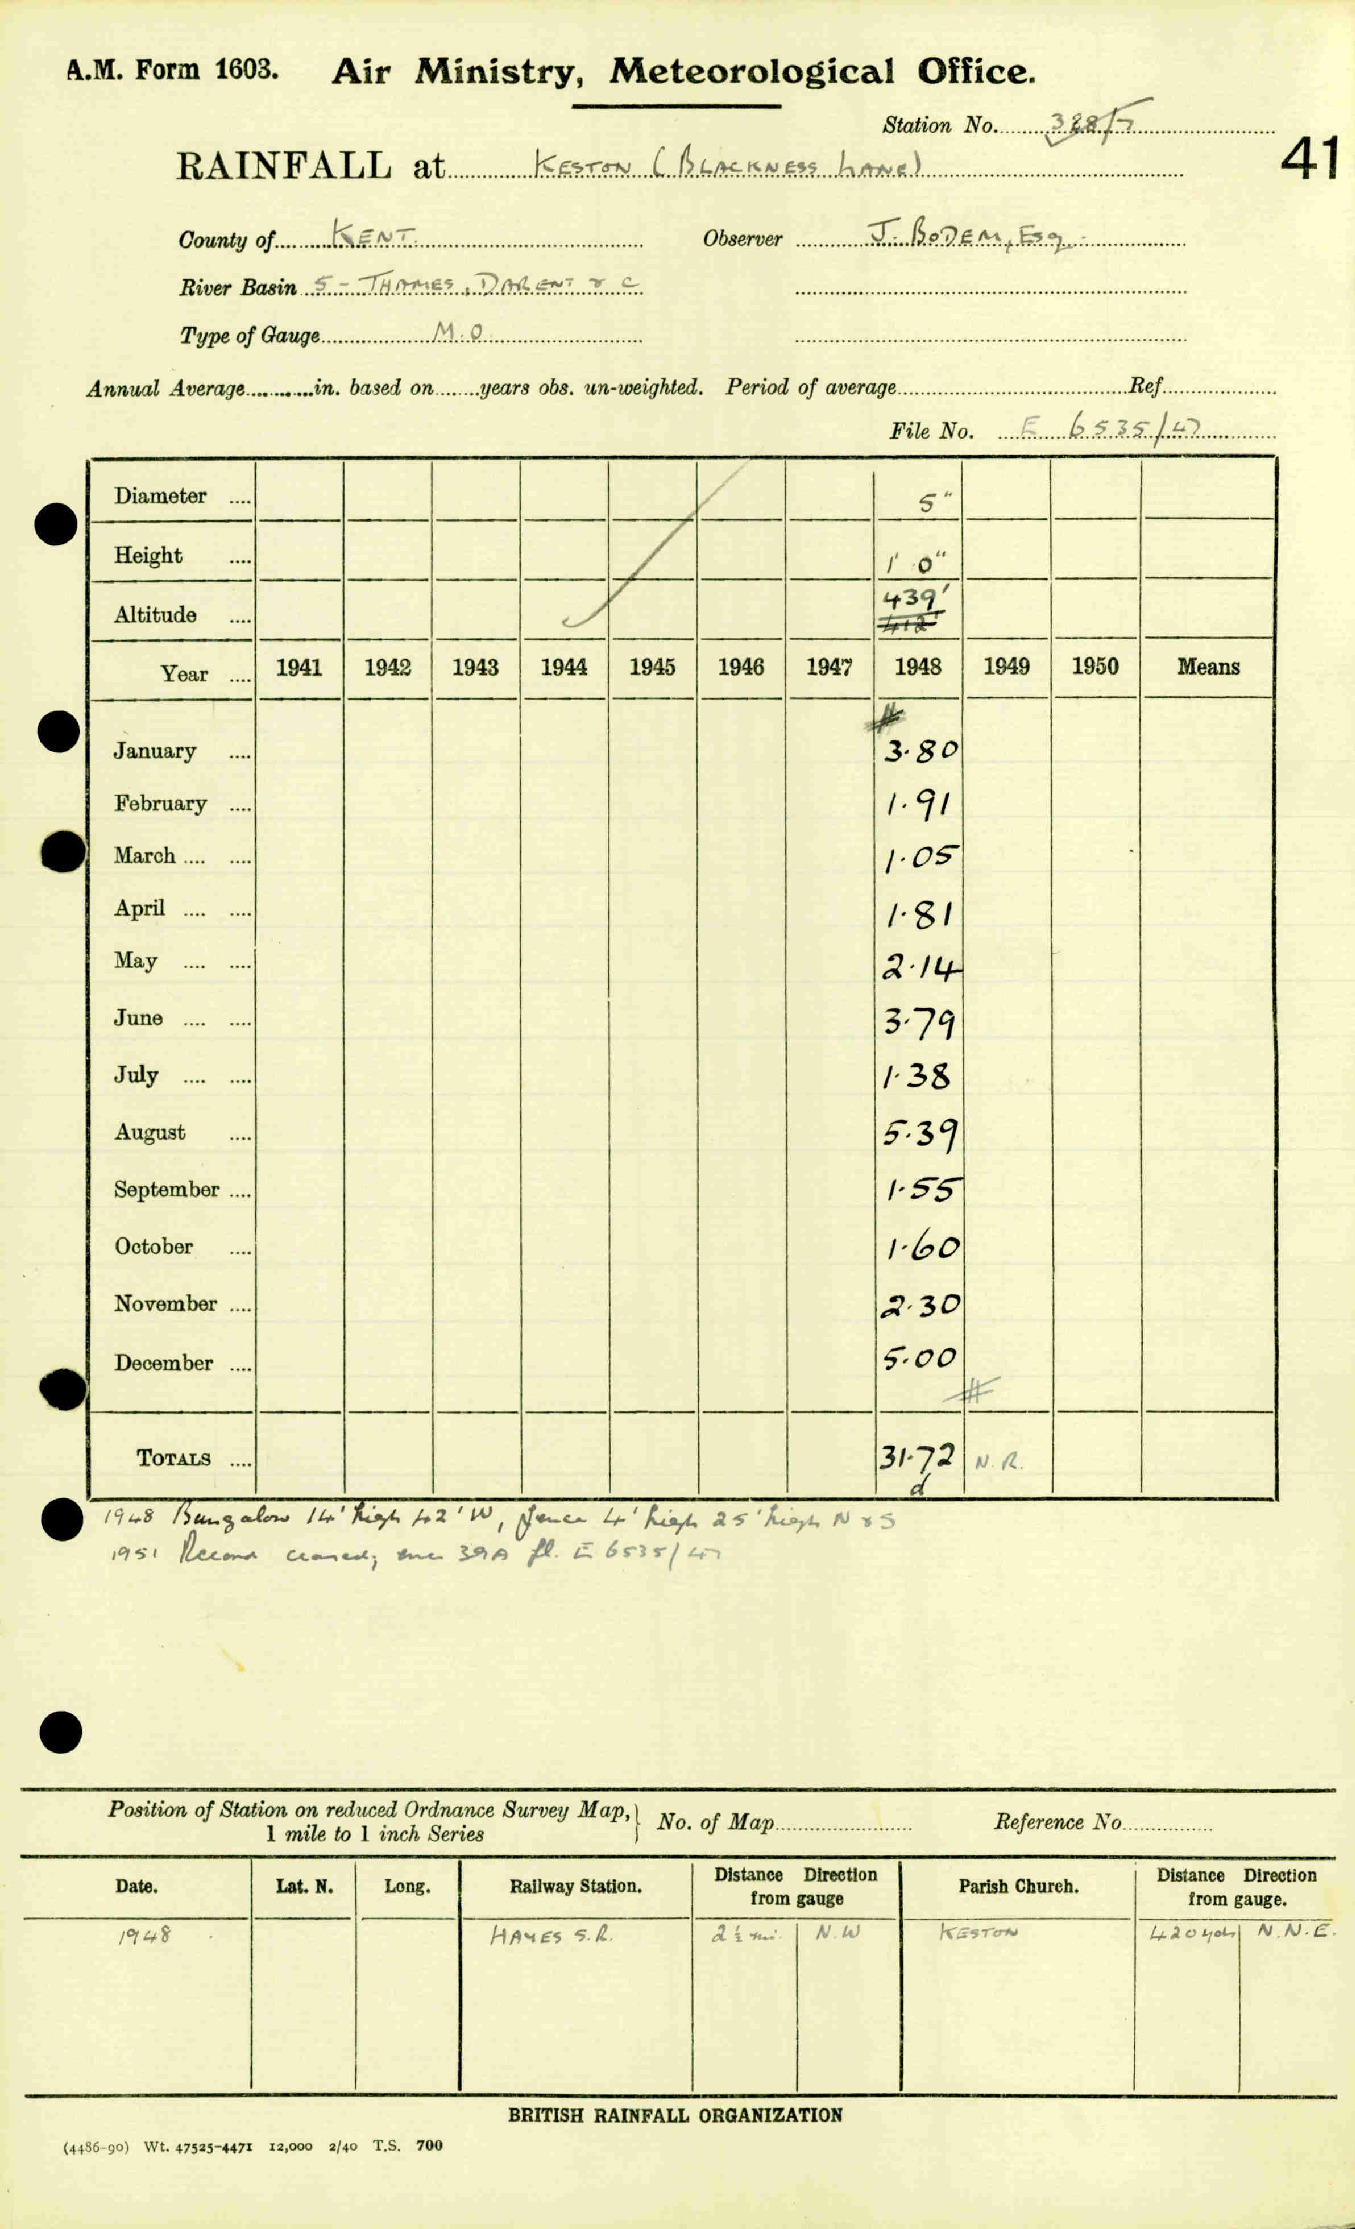 A.M. Form 1603. Air Ministry, Meteorological Office.
Station No. 328/7
41
RAINFALL at KESTON (BLACKNESS LANE)
County of KENT. Observer J. BODEM, Esq.
River Basin 5 - THAMES, DARENT & C
Type of Gauge M.O.
Annual Average in. based on years obs. un-weighted. Period of average Ref.
File No. E 6535/47
Diameter .... 5"
Height .... 1' 0"
Altitude .... 439'
412'
Year .... 1941 1942 1943 1944 1945 1946 1947 1948 1949 1950 Means
January .... 3.80
February .... 1.91
March .... .... 1.05
April .... .... 1.81
May .... .... 2.14
June .... .... 3.79
July .... .... 1.38
August .... 5.39
September .... 1.55
October .... 1.60
November .... 2.30
December .... 5.00
TOTALS .... 31.72 N.R.
d
1948 Bungalow 14' high 42' W, fence 4' high 25' high N & S
1951 Record ceased; see 39A fl. E 6535/47
Position of Station on reduced Ordnance Survey Map, 1 mile to 1 inch Series } No. of Map Reference No.
Date. Lat. N. Long. Railway Station. Distance Direction from gauge Parish Church. Distance Direction from gauge.
1948 HAYES S.R. 2½ mi. N.W KESTON 420 yds N.N.E.
BRITISH RAINFALL ORGANIZATION
(4486-90) Wt. 47525-4471 12,000 2/40 T.S. 700